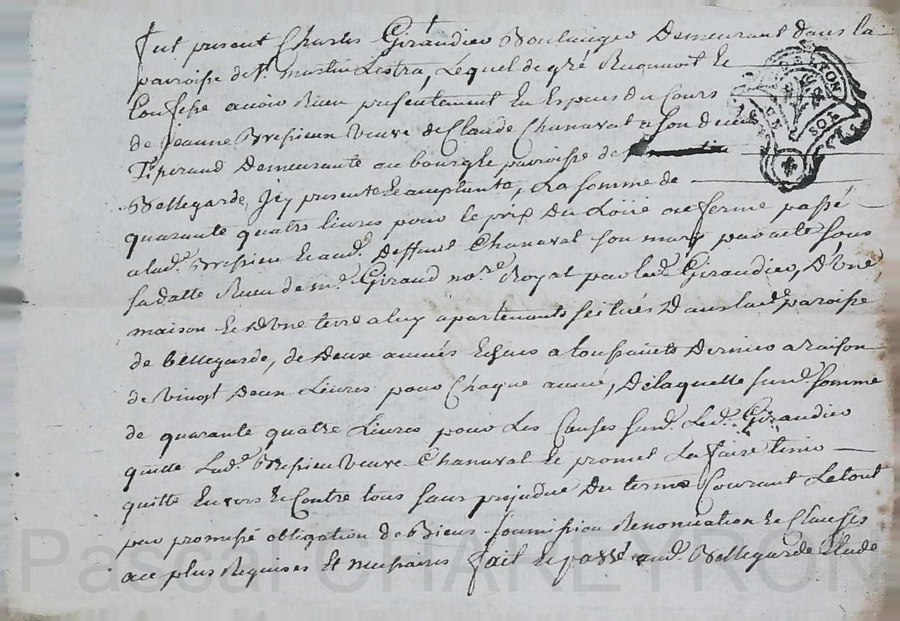 fut présent Charles Girandier Boulanger Demeurant dans la
paroisse de St. martin Lestra, Lequel de gré Reconnoit Et
Confesse avoir Receu présentement En Espèces du Cours
de Jeanne Bressieu veuve de Claude Chanavat a son deceds
Demeurante au bourg Et paroisse de
Bellegarde, Icy presente Et acceptante, La somme de
quarante quatre livres pour le prix Du Loüé ou ferme passé
a lad. Bressieu Et aud. Deffunt Chanavat son mary par acte sous
sa datte Receu de me. Giraud nore. Royal par led. Girandier, D'Une
maison Et D'Une terre a luy apartenants scitués Dans lad. paroisse
de bellegarde, de Deux années Echues a toussaints Dernier a raison
de vingt Deux Livres pour Chaque année, De laquelle susd. somme
de quarante quatre Livres pour Les Causes susd. Led. Girandier
quitte Lad. Bressieu veuve Chanavat Et promet La faire tenir
quitte Envers Et Contre tous sans préjudice Du terme Courant Le tout
par promesse obligation de Biens soumission Renonciation Et Clauses
au plus Requises Et necessaires fait Et passé aud. Bellegarde Etude
LYON
SOLS
Pascal CHAREYRON